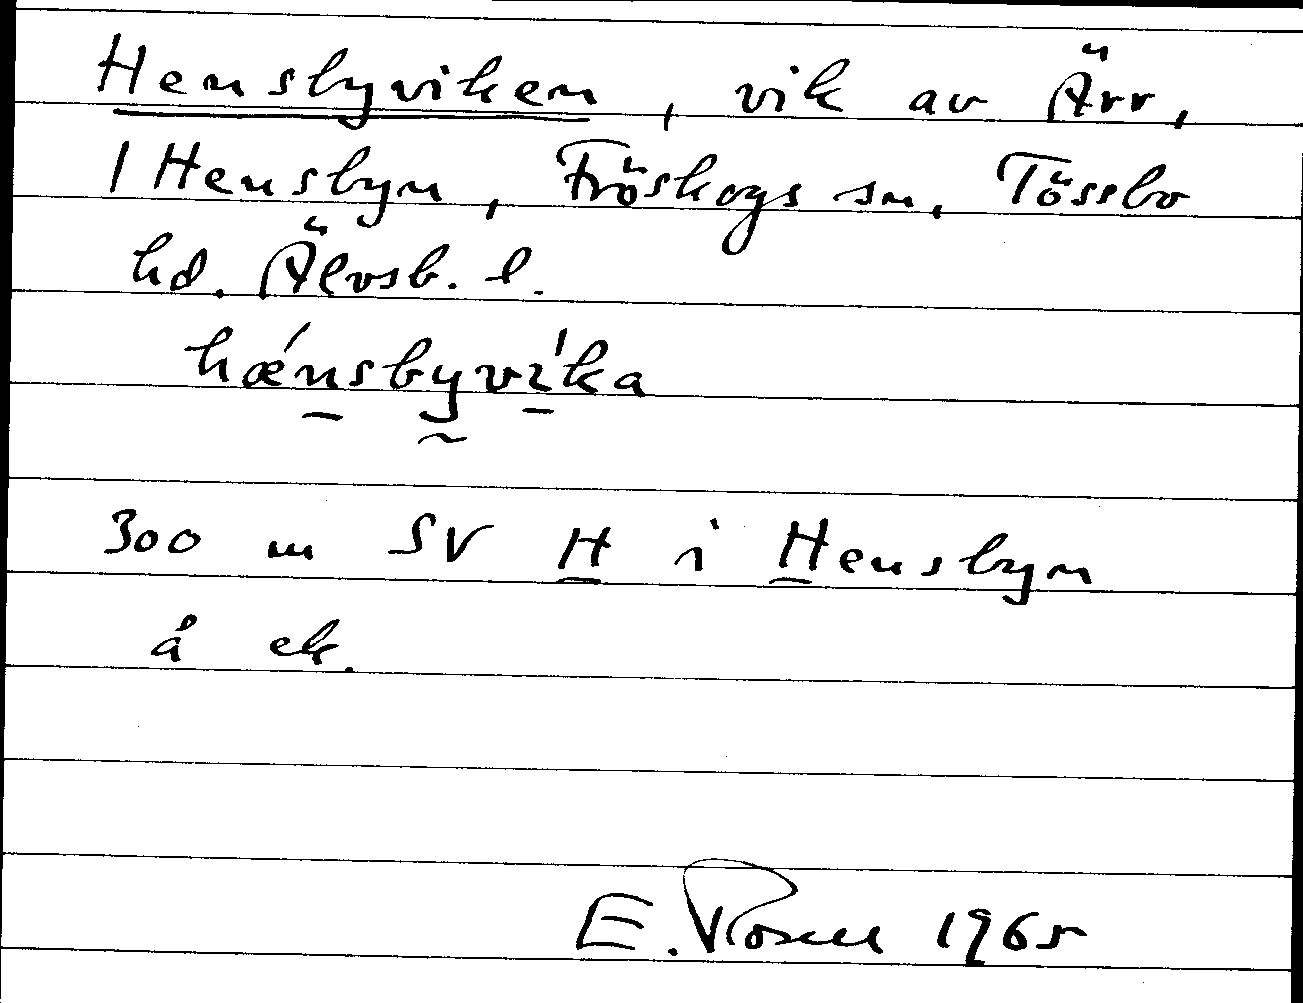 Hensbyviken, vik av Ärr,
1 Hensbyn, Fröskogs sn, Tössbo
hd. Älvsb. l.
hǽnsbyvi'ka
300 m SV H i Hensbyn
å ek.
E. Rosell 1965